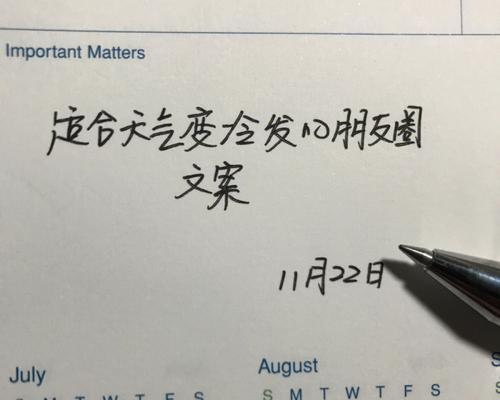 Important Matters
适合天气变冷发的朋友圈
文案
11月22日
July
August
S M T W T F S
S M T W T F S
S